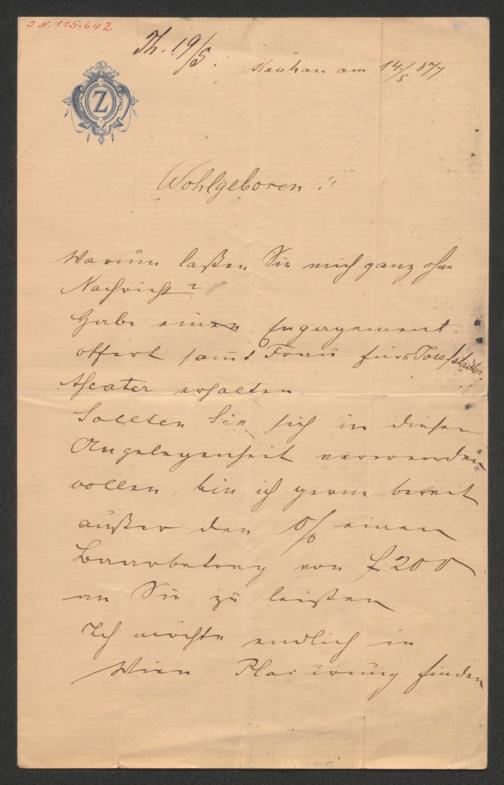 J.N. 115.642
Th. 19/5.
am 14/5 877
Z
Wohlgeboren!!
Warum laßen Sie mich ganz ohne
Nachricht?
Habe einen Engagement
offert samt Frau fürs Josefstädter
theater erhalten
Sollten Sie sich in dieser
Angelegenheit verwenden
wollen, bin ich gerne bereit
außer den % einen
Baarbetrag von f 200
an Sie zu leisten
Ich möchte endlich in
Wien Placirung finden